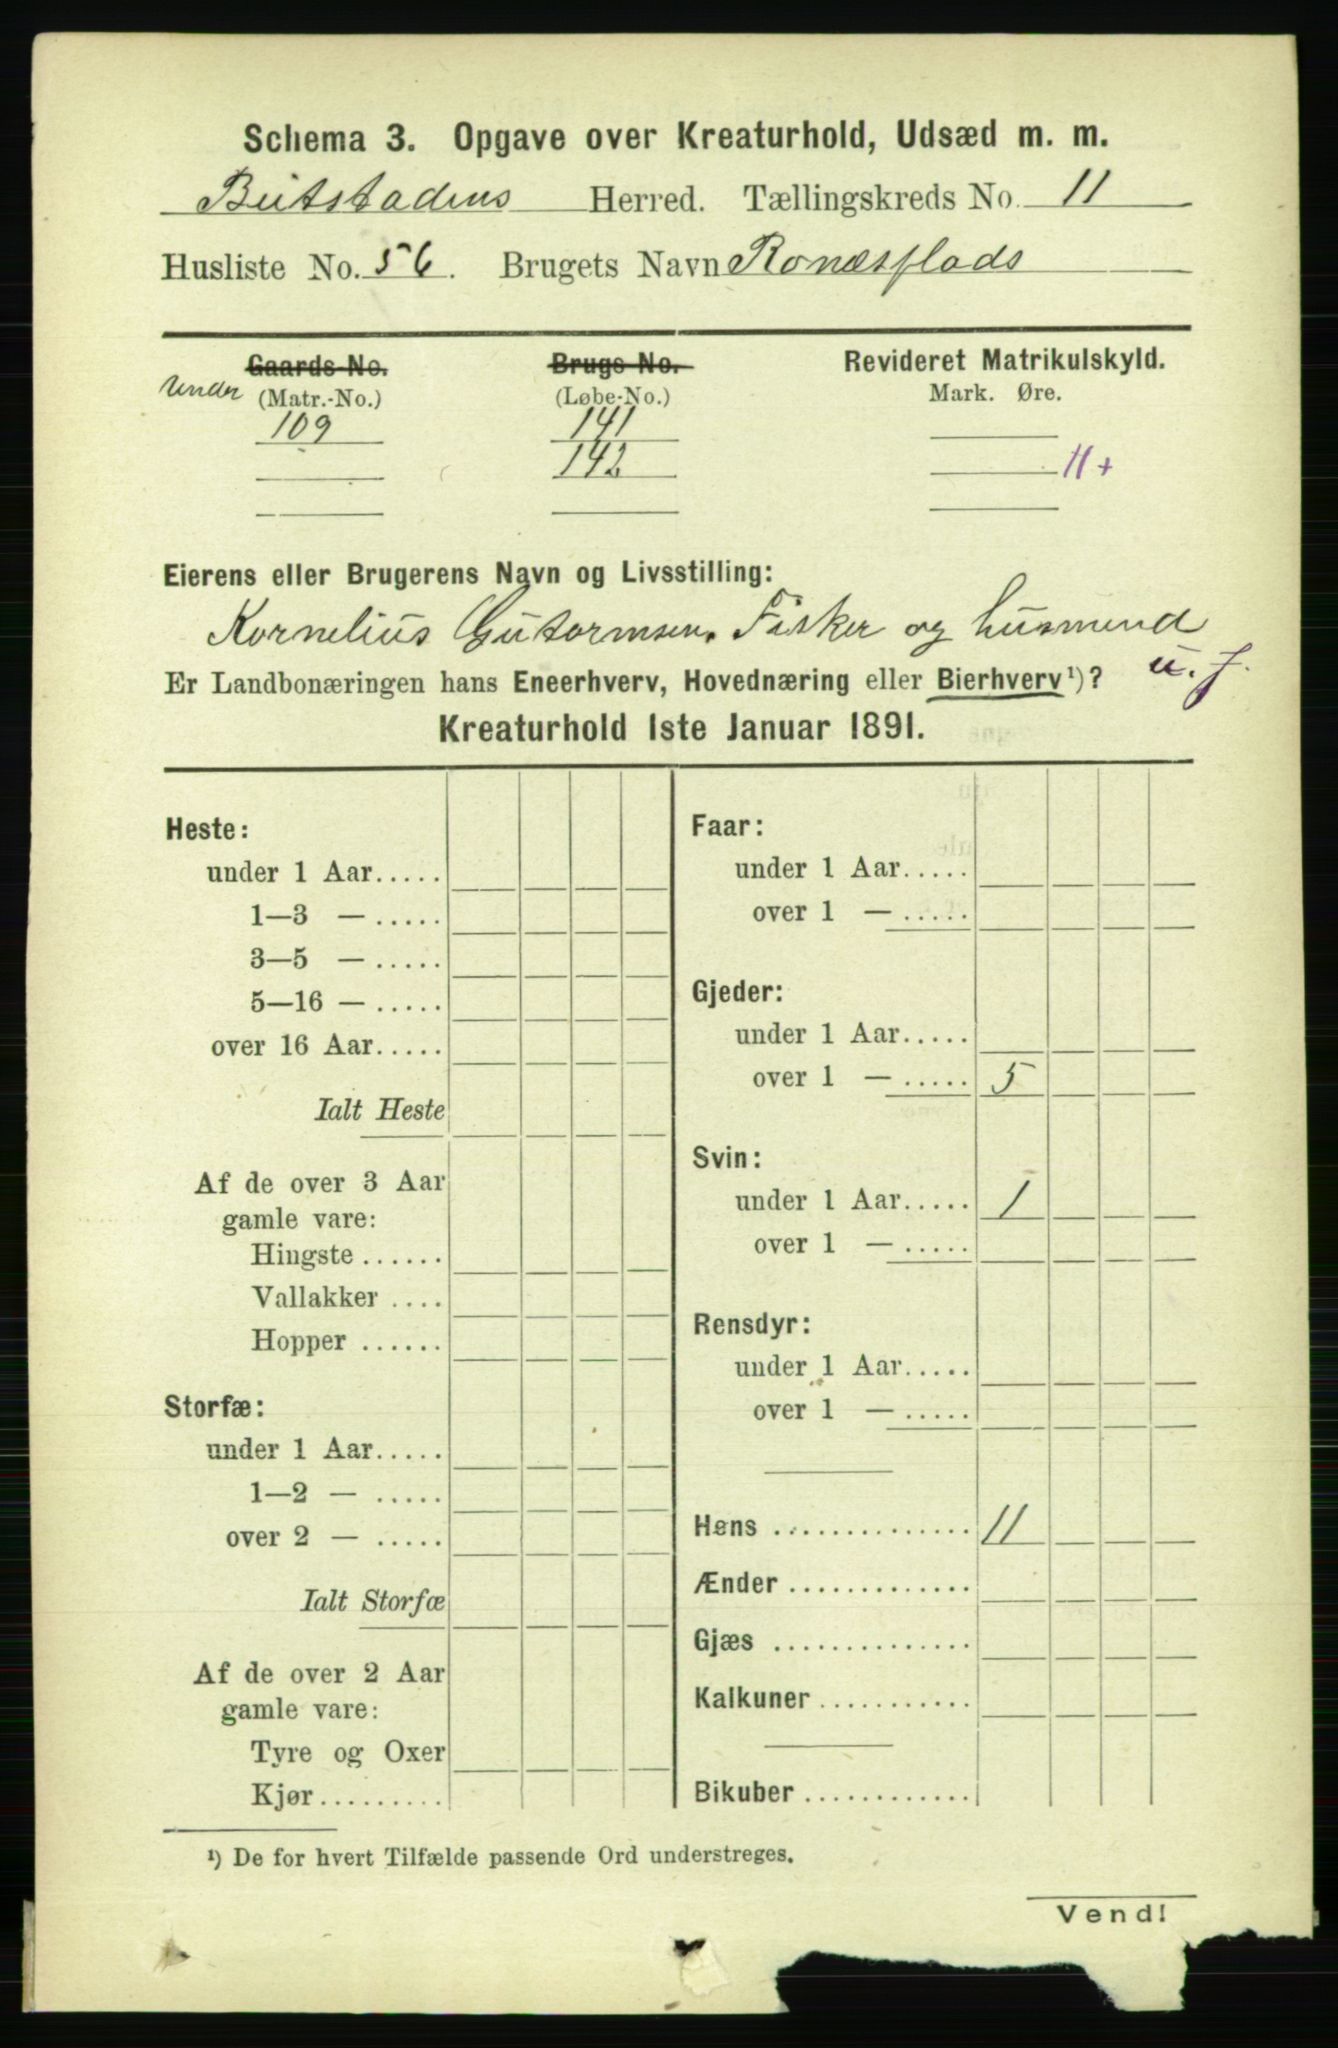 Schema 3. Opgave over Kreaturhold, Udsæd m. m.
Beitstadens Herred. Tællingskreds No. 11
Husliste No. 56. Brugets Navn Ronæsplads
Gaards No. Brugs No. Revideret Matrikulskyld.
under (Matr.-No.) (Løbe-No.) Mark. Øre.
109 141
142 11+
Eierens eller Brugerens Navn og Livsstilling:
Kornelius Gutormsen. Fisker og husmend
u. J.
Er Landbonæringen hans Eneerhverv, Hovednæring eller Bierhverv¹)?
Kreaturhold 1ste Januar 1891.
Heste:
under 1 Aar.....
1—3 — .....
3—5 — .....
5—16 — .....
over 16 Aar.....
Ialt Heste
Af de over 3 Aar
gamle vare:
Hingste ......
Vallakker ....
Hopper ......
Storfæ:
under 1 Aar.....
1—2 — .....
over 2 — .....
Ialt Storfæ
Af de over 2 Aar
gamle vare:
Tyre og Oxer
Kjør.........
Faar:
under 1 Aar.....
over 1 — .....
Gjeder:
under 1 Aar.....
over 1 — ..... 5
Svin:
under 1 Aar..... 1
over 1 — .....
Rensdyr:
under 1 Aar.....
over 1 — .....
Høns .............. 11
Ænder .............
Gjæs ..............
Kalkuner ...........
Bikuber ............
¹) De for hvert Tilfælde passende Ord understreges.
Vend!